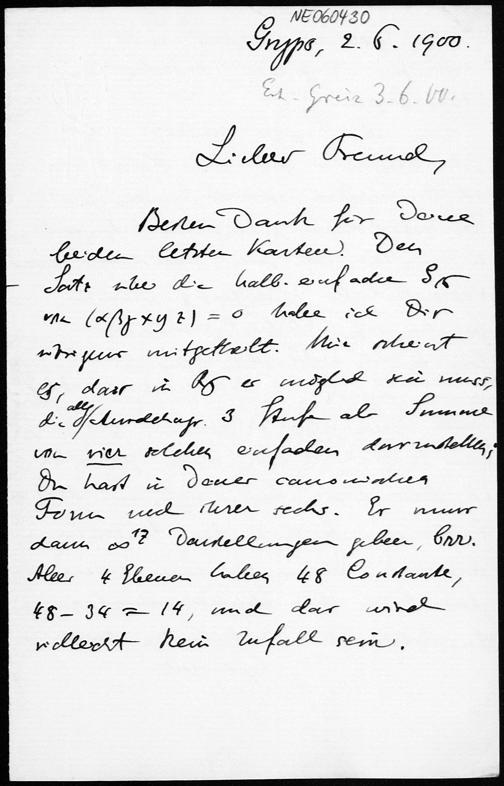 NE060430
Gryps, 2. 6. 1900.
Erh. Greiz 3-6.00.
Lieber Freund,
Besten Dank für Deine
beiden letzten Karten. Den
Satz über die halb-einfachen
von (αβγ x y z) = 0 habe ich Dir
übrigens mitgetheilt. Mir scheint
es, dass in er möglich sein muss,
die allg. 3 Stufe als Summe
von vier solchen einfachen darzustellen;
Du hast in Deiner canonischen
Form noch ihrer sechs. Es muss
dann ∞¹⁷ Darstellungen geben,
Aber 4 Ebenen haben 48 Constante,
48 - 34 = 14, und das wird
vielleicht kein Zufall sein.